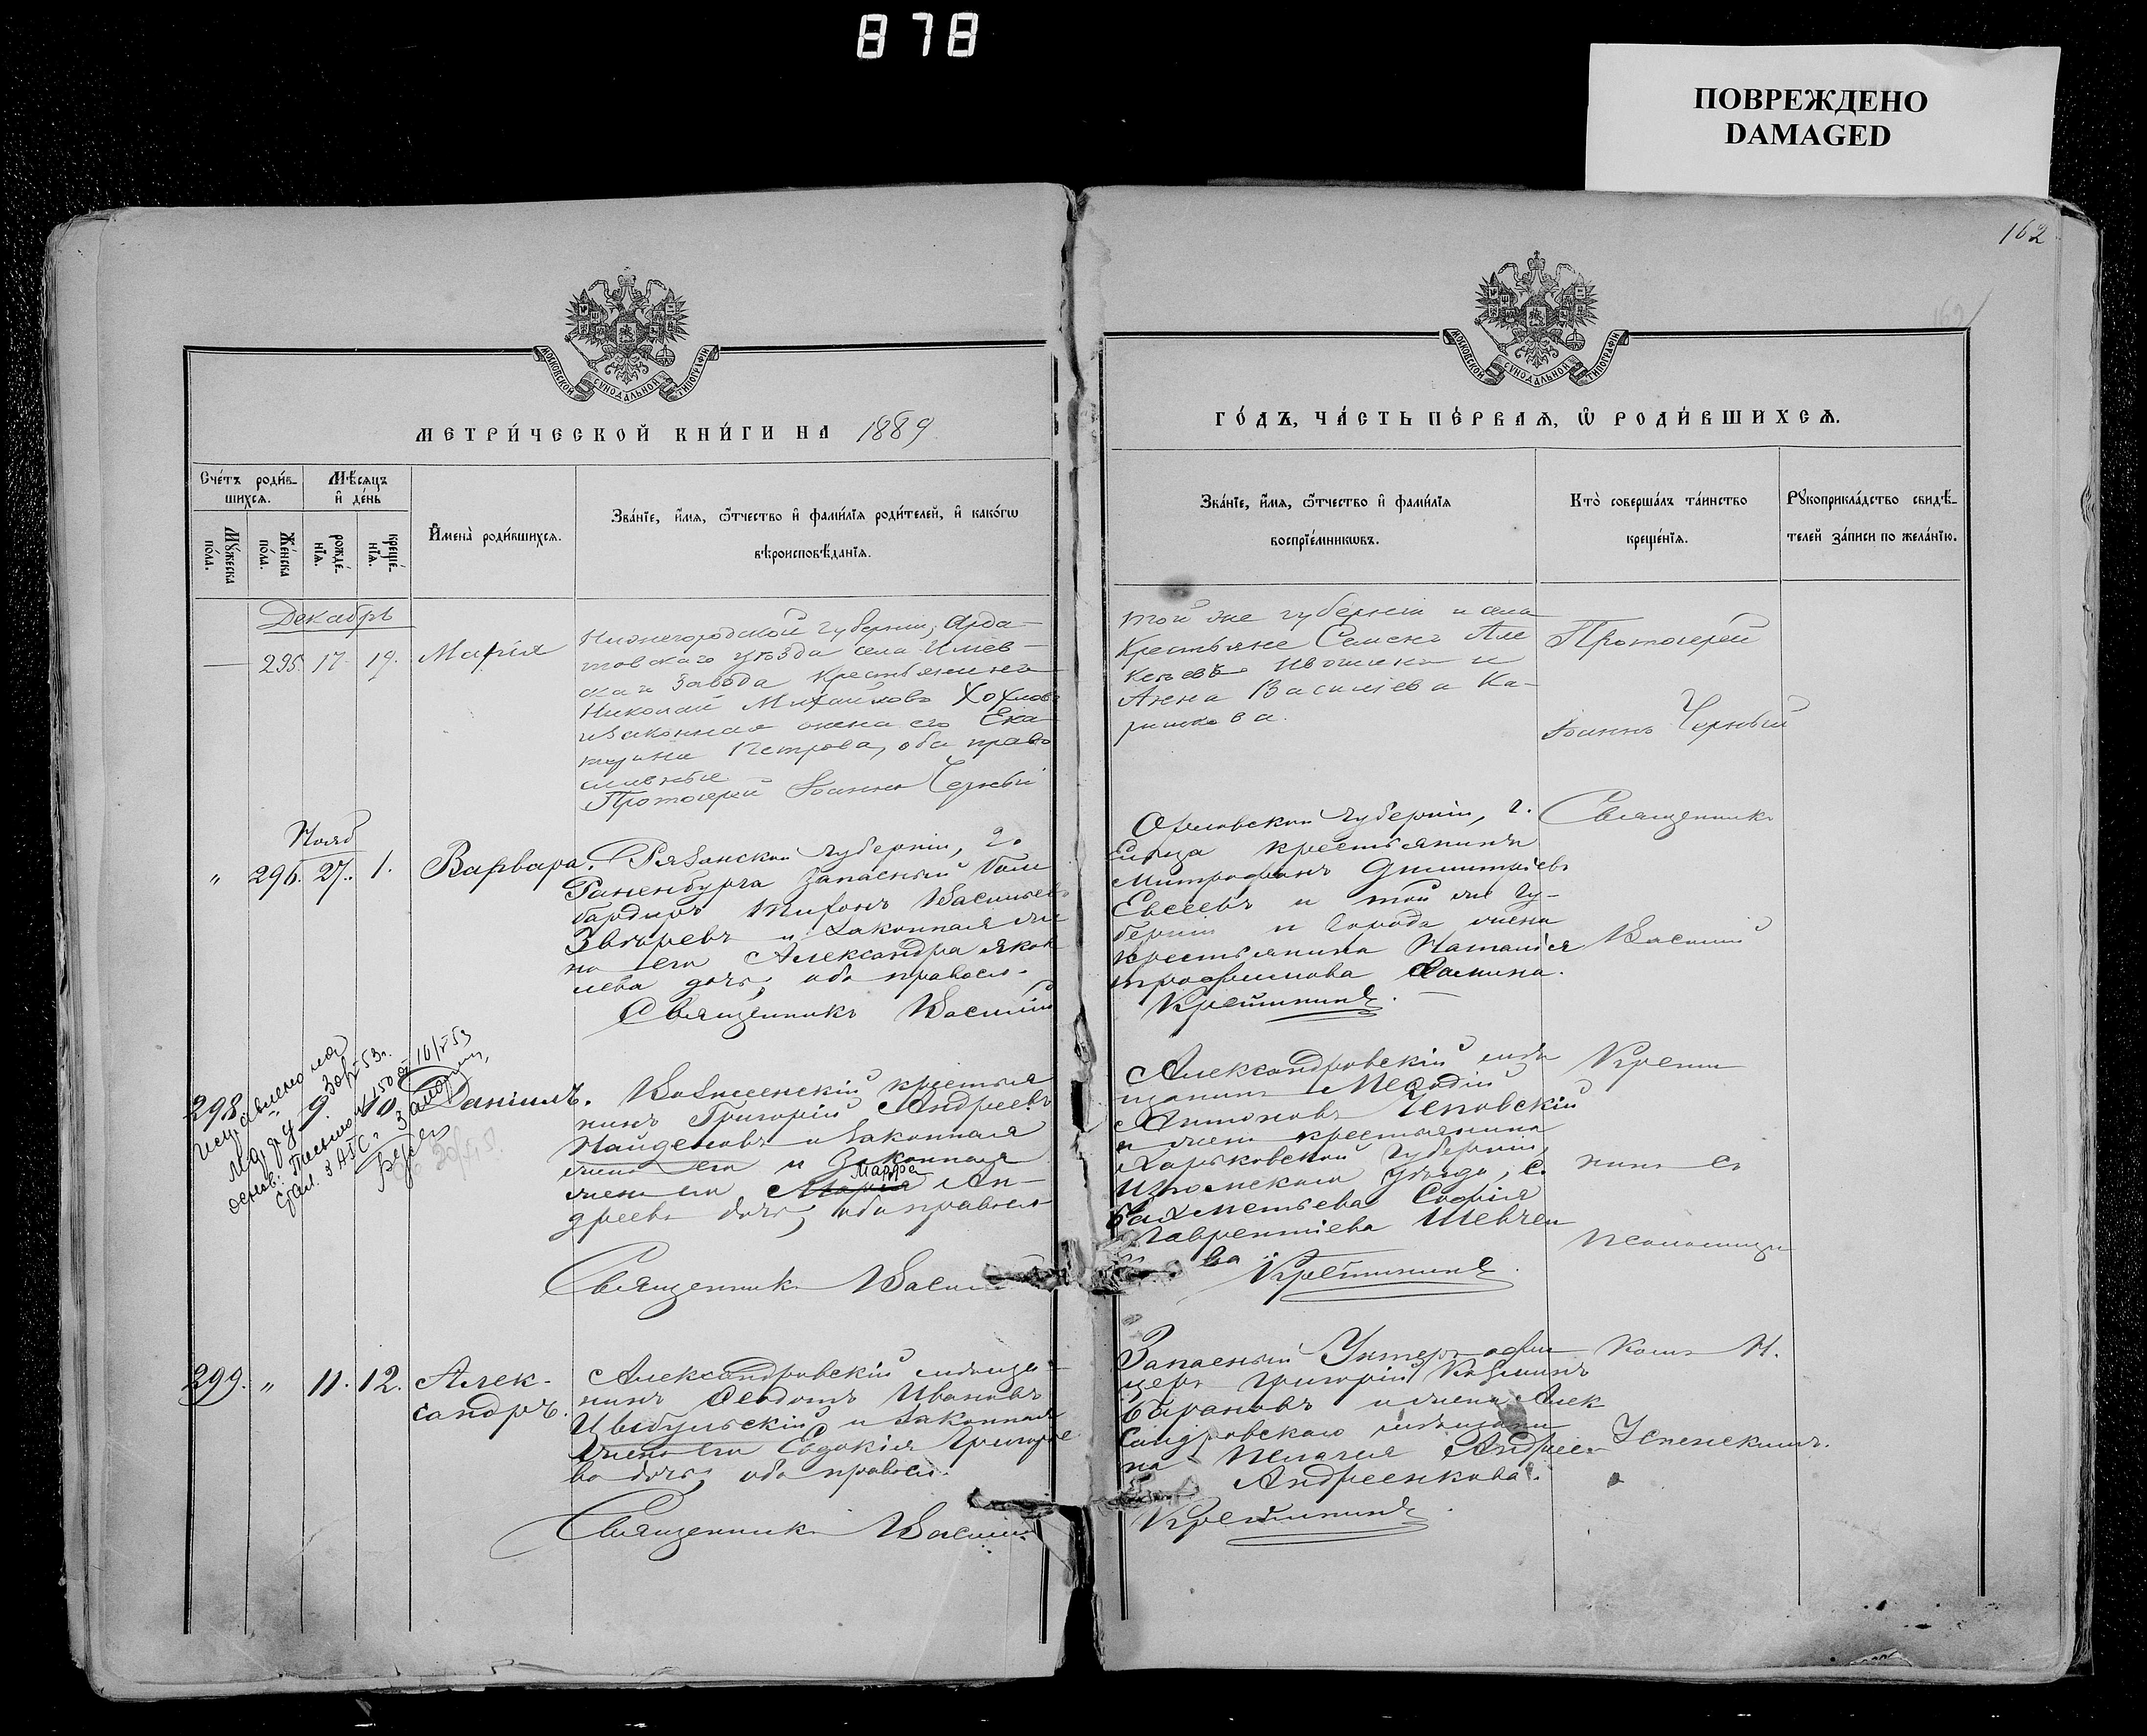 878
ПОВРЕЖДЕНО
DAMAGED
162
162
МОСКОВСКОЙ СѴНОДАЛЬНОЙ ТИПОГРАФІИ
МОСКОВСКОЙ СѴНОДАЛЬНОЙ ТИПОГРАФІИ
МЕТРИ́ЧЕСКОЙ КНИ́ГИ НА 1889
ГО́ДЪ, ЧА́СТЬ ПЕ́РВАѦ, Ѡ РОДИ́ВШИХСѦ.
Сче́тъ роди́в-
шихсѧ.
Мꙋ́жеска
по́ла.
Же́нска
по́ла.
Мѣ́сѧцъ
и҆ де́нь
рожде́-
нїѧ.
креще́-
нїѧ.
И҆мена̀ роди́вшихсѧ.
Зва́нїе, и҆́мѧ, ѻ҆́тчество и҆ фами́лїѧ роди́телей, и҆ како́гѡ
вѣроисповѣ́данїѧ.
Зва́нїе, и҆́мѧ, ѻ҆́тчество и҆ фами́лїѧ
воспрїе́мникѡвъ.
Кто̀ соверша́лъ та́инство
креще́нїѧ.
Рꙋкоприкла́дство свидѣ́-
телей за́писи по жела́нїю.
Декабрь
— 295. 17 19. Марія
Нижегородской губерніи, Арда-
товскаго уѣзда села Илев-
скаго завода крестьянинъ
Николай Михайловъ Хохлов
и законная жена его Ека-
терина Петрова, оба право
славные
Протоіерей Іоаннъ Черный
той же губерніи и села
Крестьяне Семенъ Але
ксѣевъ и
Анна Васильева Ка-
Протоіерей
Іоаннъ Черный
Нояб
" 296. 27. 1. Варвара.
Рязанской губерніи, г.
Раненбурга запасный бом
бардиръ Тихонъ Васильев
Звѣревъ и законная же
на его Александра Яков
лева дочь, оба правосл.
Священникъ Василій
Орловской губерніи, г.
Ельца крестьянинъ
Митрофанъ Димитріевъ
Евсеевъ и той же гу-
берніи и города жена
крестьянина Наталія
Трофимова
Кретининъ.
Священникъ
Василій
298 " 9. 10. Даніилъ.
Исправлено на
Марфу
30/I-53г.
Вознесенскій крестья
нинъ Григорій Андреевъ
Найденовъ и законная
жена его и Законная
Марфа
жена его Марія Ан-
дреева дочь, оба правосл
Священникъ Васил
Александровскій мѣ
щанинъ Меѳодій
Антоновъ
и жена крестьянина
Харьковской губерніи,
Изюмскаго уѣзда, с.
Бахметьева Софія
Лаврентіева Шевчен
ва
Кретининъ.
Крети
нинъ съ
псаломщи
299. " 11. 12. Алек-
сандръ.
Александровскій мѣща-
нинъ Ѳедотъ Ивановъ
Цыбульскій и законная
жена его Евдокія Григорье
ва дочь, оба правосл.
Священникъ Василій
Запасный Унтеръ офи
церъ Григорій Козминъ
Барановъ и жена Алек
сандровскаго мѣщани
на Пелагія Андрее-
Андреенкова.
Кретининъ.
комъ Н.
Успенскимъ.